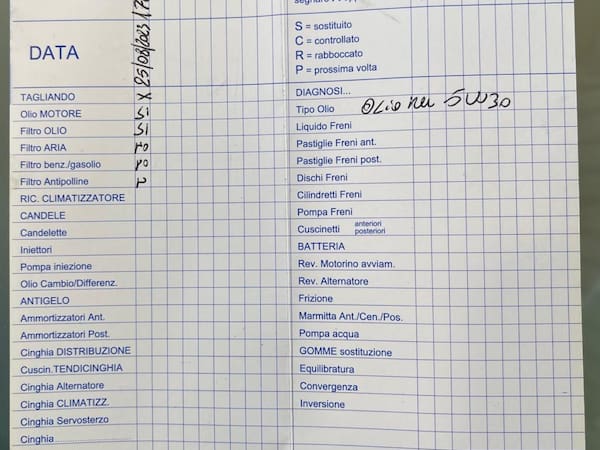 S = sostituito
C = controllato
R = rabboccato
P = prossima volta
DATA
TAGLIANDO X
Olio MOTORE Si
Filtro OLIO Si
Filtro ARIA
Filtro benz./gasolio
Filtro Antipolline
RIC. CLIMATIZZATORE
CANDELE
Candelette
Iniettori
Pompa iniezione
Olio Cambio/Differenz.
ANTIGELO
Ammortizzatori Ant.
Ammortizzatori Post.
Cinghia DISTRIBUZIONE
Cuscin.TENDICINGHIA
Cinghia Alternatore
Cinghia CLIMATIZZ.
Cinghia Servosterzo
Cinghia
DIAGNOSI...
Tipo Olio Olio 5W30
Liquido Freni
Pastiglie Freni ant.
Pastiglie Freni post.
Dischi Freni
Cilindretti Freni
Pompa Freni
Cuscinetti anteriori
posteriori
BATTERIA
Rev. Motorino avviam.
Rev. Alternatore
Frizione
Marmitta Ant./Cen./Pos.
Pompa acqua
GOMME sostituzione
Equilibratura
Convergenza
Inversione